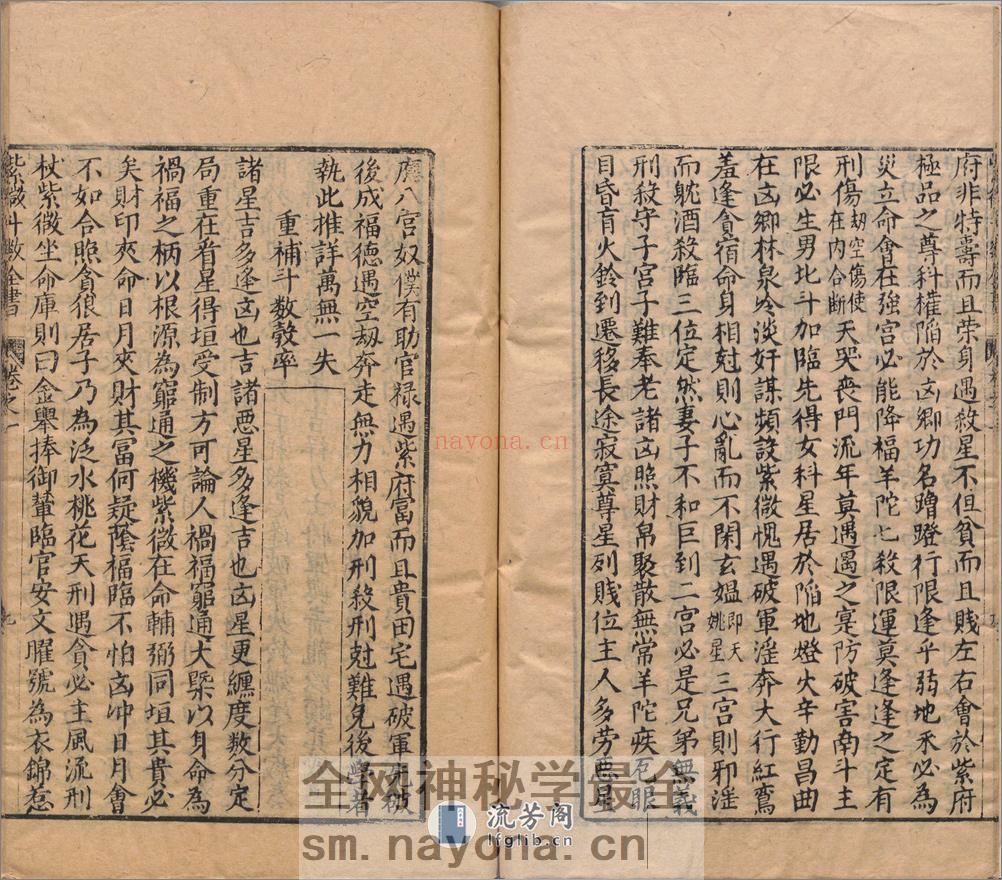 府非特壽而且荣身遇殺星不但貧而且賤左右會於紫府
極品之尊科權陷於凶鄉功名蹭蹬行限逢乎弱地禾必為
災立命會在強宮必能降福羊陀七殺限運莫逢逢之定有
刑傷劫空傷使在内合断天哭喪門流年莫遇遇之寔防破害南斗主
限必生男北斗加臨先得女科星居於陷地燈火辛勤昌曲
在凶鄉林泉冷淡奸謀頻設紫微愧遇破軍淫奔大行紅鸞
羞逢貪宿命身相尅則心亂而不閑玄媪即天姚星三宮則邪淫
而躭酒殺臨三位定然妻子不和巨到二宮必是兄弟無義
刑殺守子宮子難奉老諸凶照財帛聚散無常羊陀疾厄眼
目昏盲火鈴到遷移長途寂寞尊星列賤位主人多劳惡星
應八宮奴僕有助官禄遇紫府富而且貴田宅遇破軍先破
後成福德遇空劫奔走無力相貌加刑殺刑尅難免後學者
執此推詳萬無一失
重補斗數彀率
諸星吉多逢凶也吉諸惡星多逢吉也凶星更纏度数分定
局重在看星得垣受制方可論人禍福窮通大槩以身命為
禍福之柄以根源為窮通之機紫微在命輔弼同垣其貴必
矣財印夾命日月夾財其富何疑蔭福臨不怕凶冲日月會
不如合照貪狼居子乃為泛水桃花天刑遇貪必主風流刑
杖紫微坐命庫則曰金舉捧御輦臨官安文曜號為衣錦惹
紫微斗數全書 卷之一 九
nayona.cn
全网神秘学最全
流芳阁
lfglib.cn
sm.nayona.cn